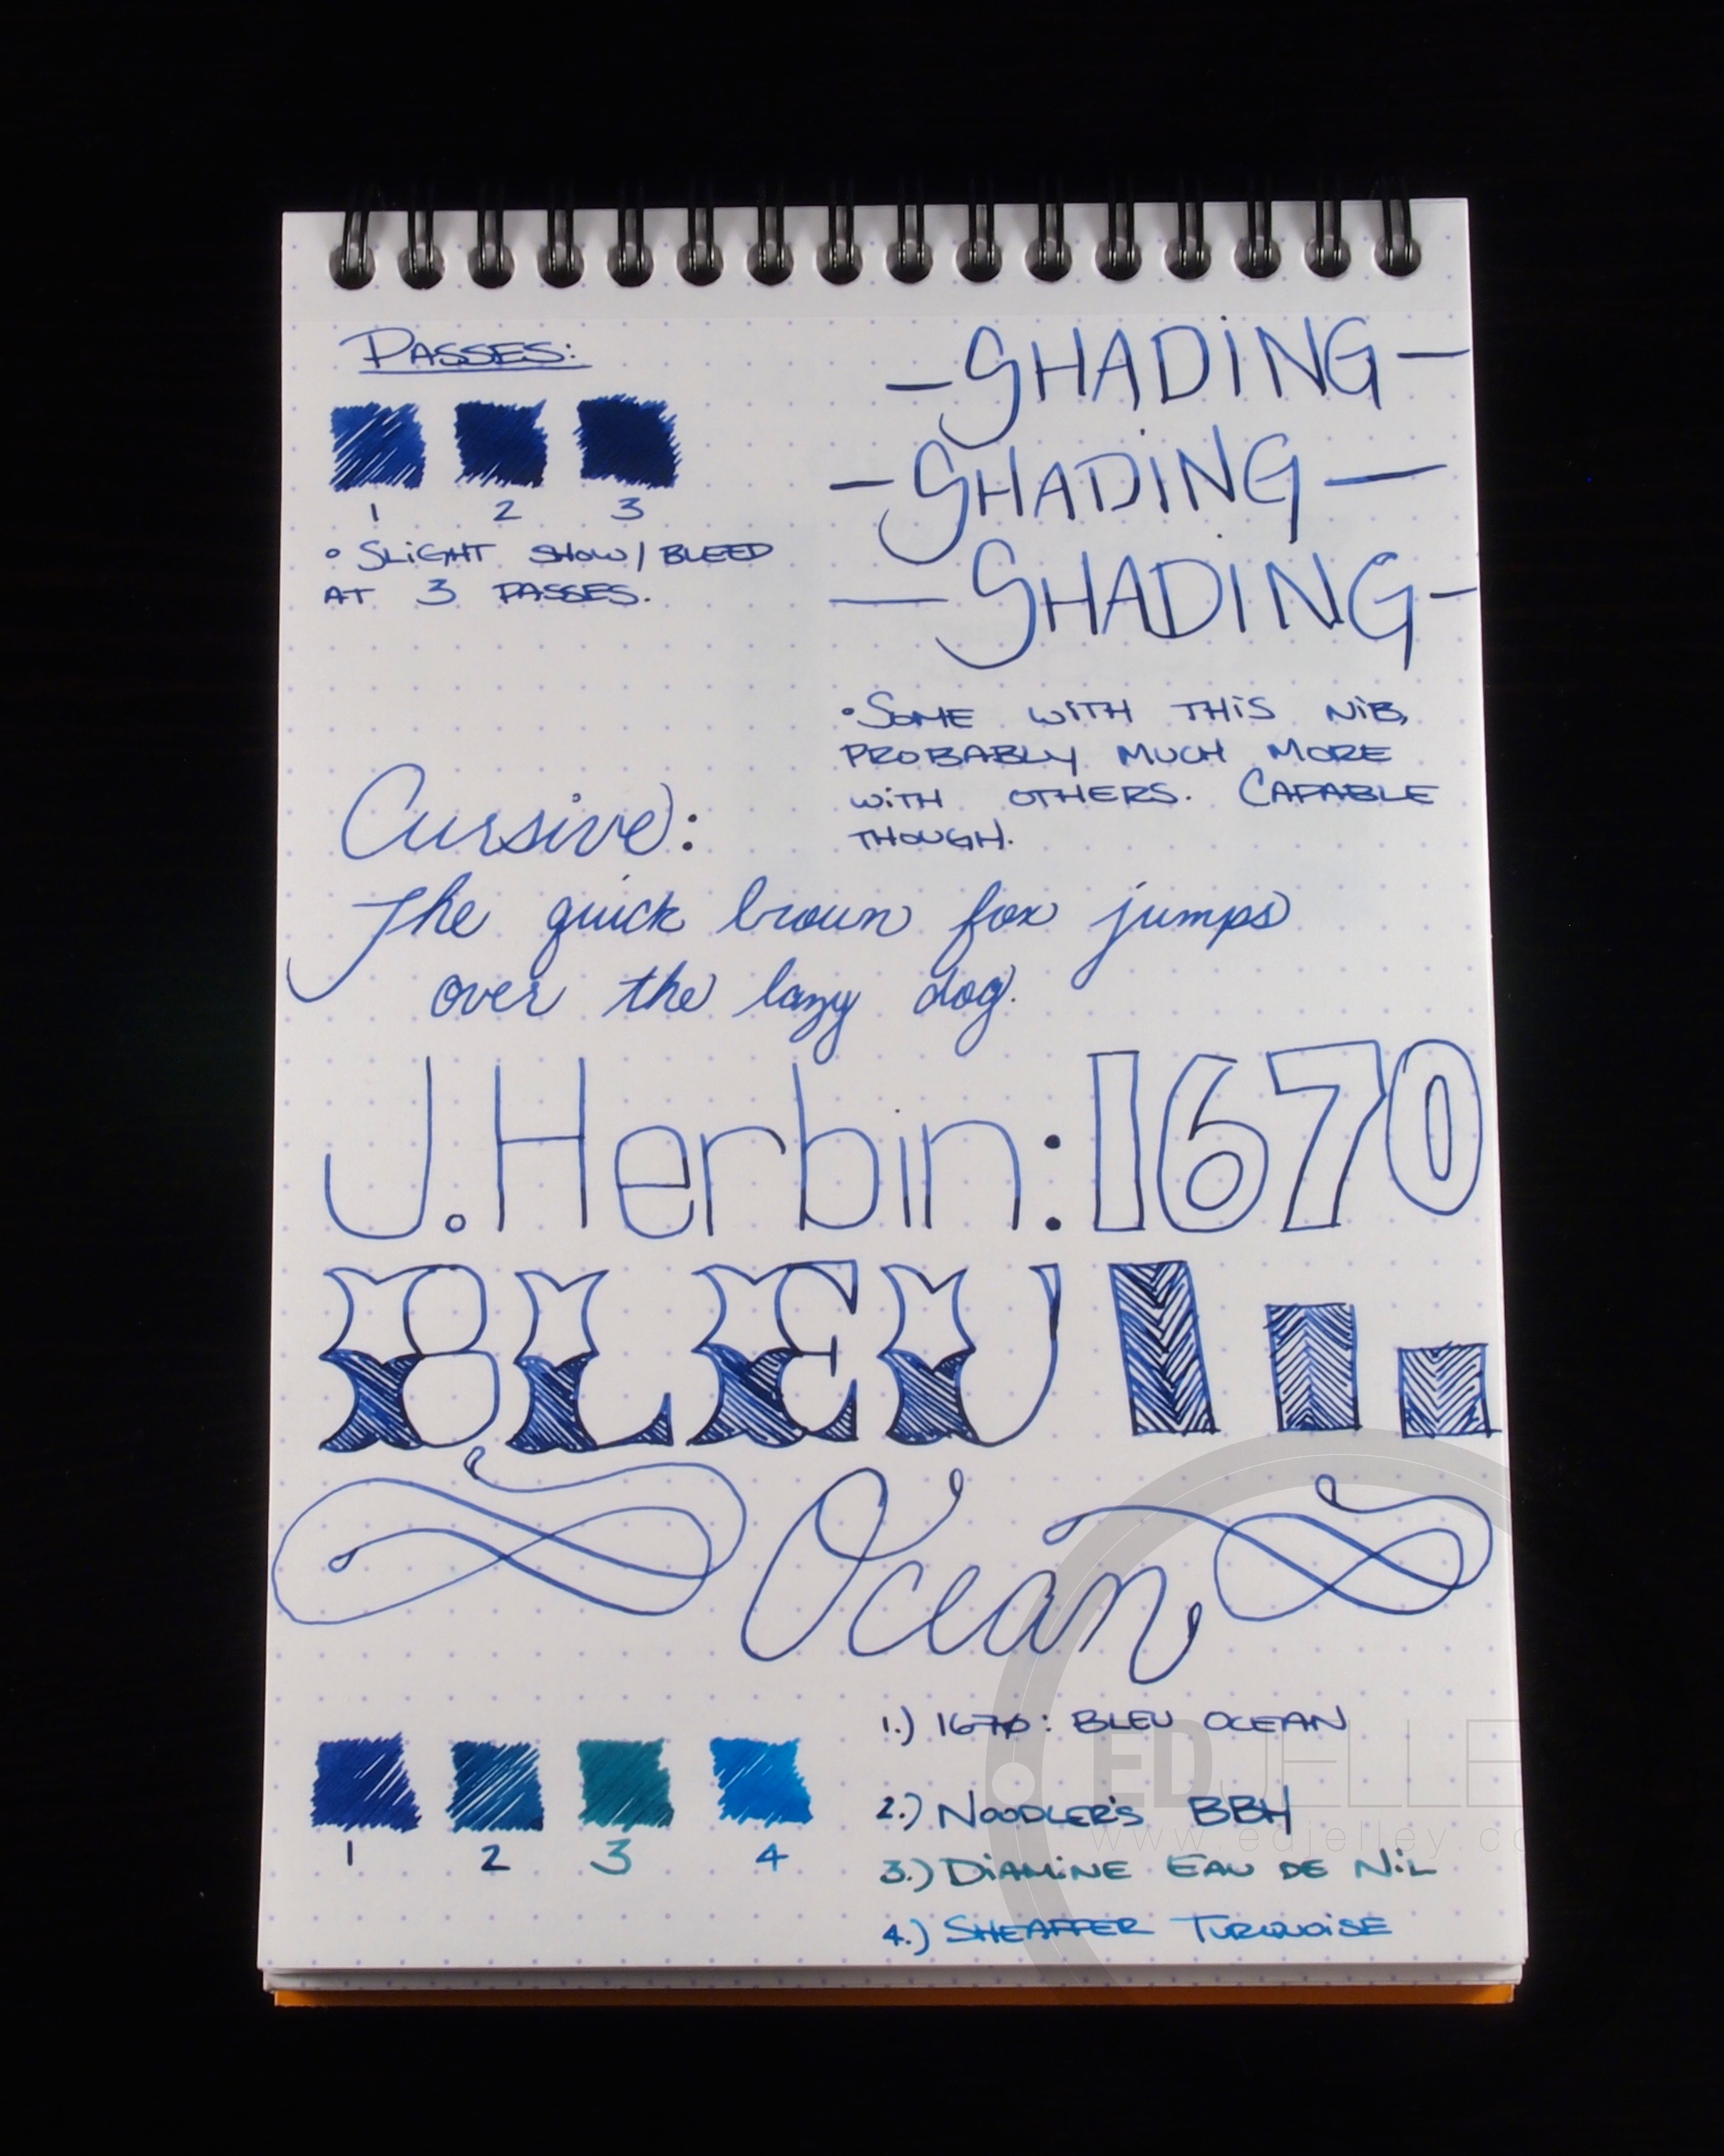 PASSES:
1 2 3
• SLIGHT SHOW/BLEED
AT 3 PASSES.
-SHADING-
-SHADING-
-SHADING-
•SOME WITH THIS NIB,
PROBABLY MUCH MORE
WITH OTHERS. CAPABLE
THOUGH.
Cursive:
The quick brown fox jumps
over the lazy dog.
J. Herbin: 1670
BLEU
Ocean
1 2 3 4
1.) 1670: BLEU OCEAN
2.) NOODLER'S BBH
3.) DIAMINE EAU DE NIL
4.) SHEAFFER TURQUOISE
EDJELLE
www.edjelley.co